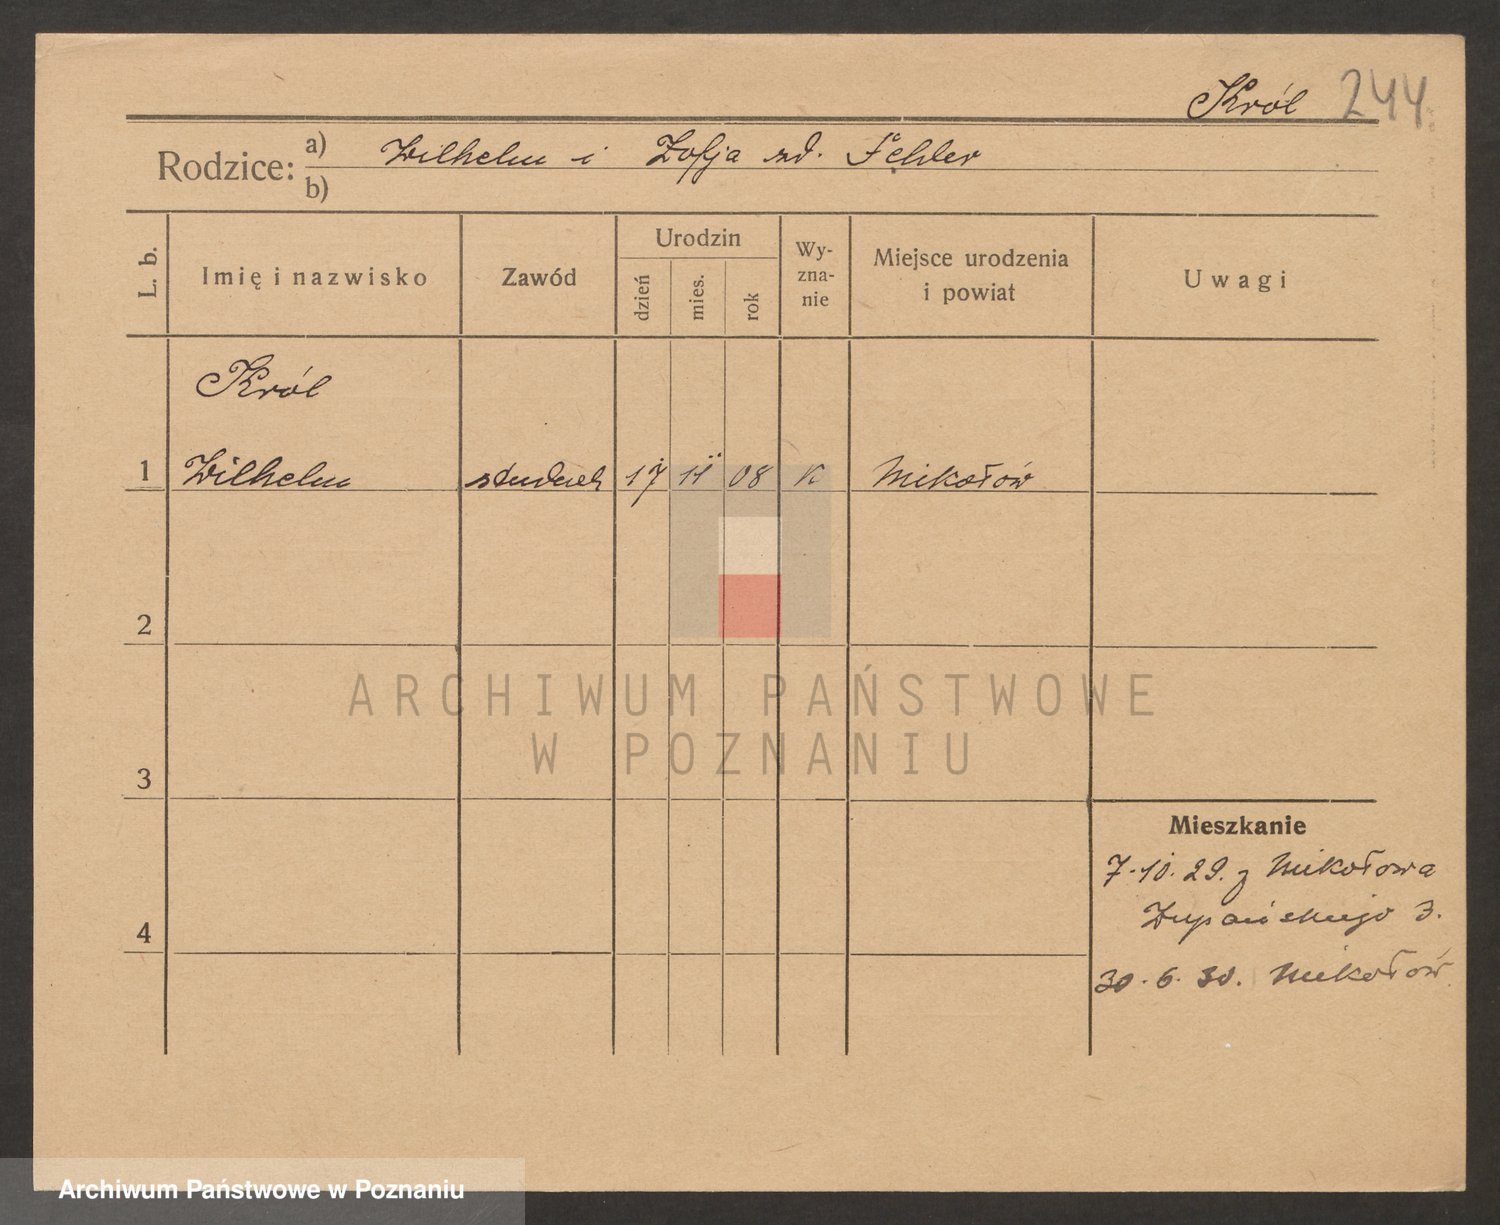 Król 244
Rodzice: a) Wilhelm i Zofja zd. Fehler
b)
L. b.
Imię i nazwisko
Zawód
Urodzin
dzień
mies.
rok
Wy-
zna-
nie
Miejsce urodzenia
i powiat
Uwagi
Król
1 Wilhelm student 17 08 K Mikołów
2
3
4
ARCHIWUM PAŃSTWOWE
W POZNANIU
Mieszkanie
7.10.29. z Mikołowa
Żupańskiego 3.
30.6.30. Mikołów
Archiwum Państwowe w Poznaniu